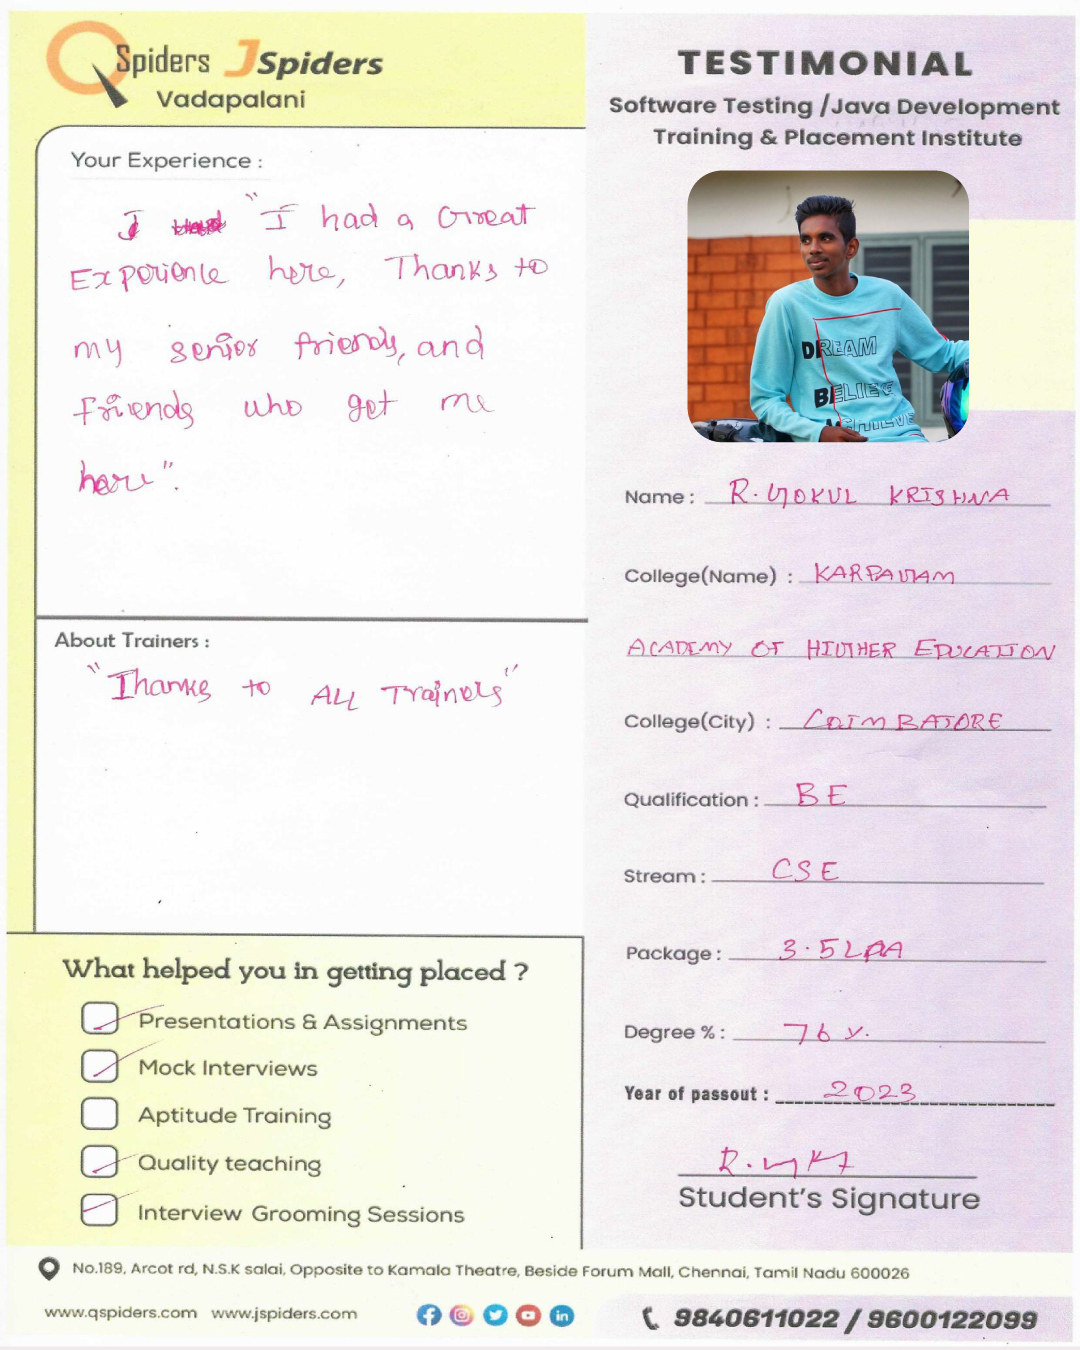 QSpiders JSpiders
Vadapalani
TESTIMONIAL
Software Testing /Java Development
Training & Placement Institute
Your Experience :
I "I had a Great
Experience here, Thanks to
my senior friends, and
friends who get me
here".
DREAM
BELIEVE
ACHIEVE
Name : R. GOKUL KRISHNA
College(Name) : KARPAGAM
ACADEMY OF HIGHER EDUCATION
College(City) : COIMBATORE
Qualification : BE
Stream : CSE
Package : 3.5 LPA
Degree % : 76 %
Year of passout : 2023
Student's Signature
About Trainers :
"Thanks to ALL Trainers"
What helped you in getting placed ?
Presentations & Assignments
Mock Interviews
Aptitude Training
Quality teaching
Interview Grooming Sessions
No.189, Arcot rd, N.S.K salai, Opposite to Kamala Theatre, Beside Forum Mall, Chennai, Tamil Nadu 600026
www.qspiders.com www.jspiders.com
9840611022 / 9600122099